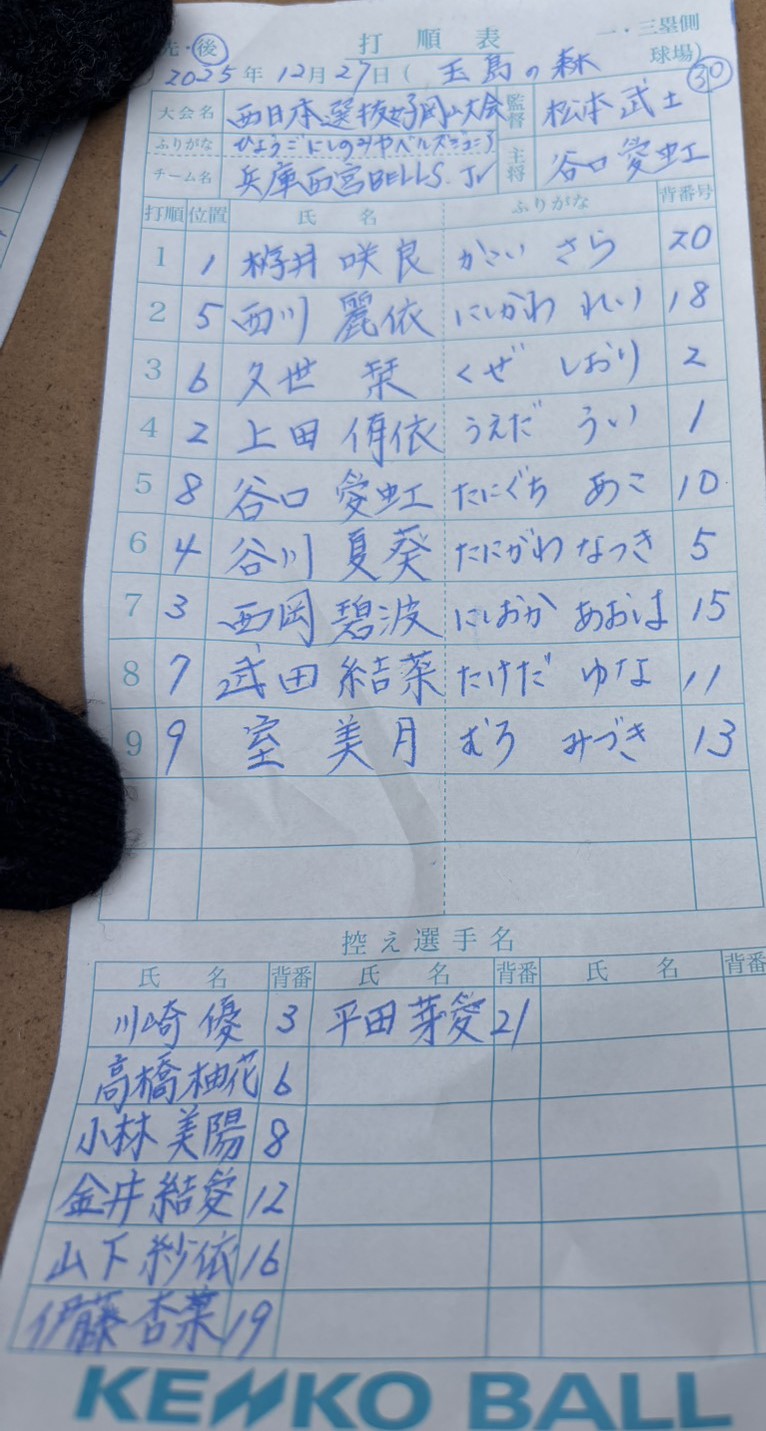 先・後 打順表 一・三塁側
2025年12月27日(玉島の森 球場)
大会名 西日本選抜女子岡山大会 監督 松本 武士 30
ふりがな ひょうごにしのみやベルズジュニア
チーム名 兵庫西宮BELLS.Jr 主将 谷口 愛虹
打順 位置 氏名 ふりがな 背番号
1 1 栫井 咲良 かこい さら 20
2 5 西川 麗依 にしかわ れい 18
3 6 久世 栞 くぜ しおり 2
4 2 上田 侑依 うえだ うい 1
5 8 谷口 愛虹 たにぐち あこ 10
6 4 谷川 夏葵 たにがわ なつき 5
7 3 西岡 碧波 にしおか あおは 15
8 7 武田 結菜 たけだ ゆな 11
9 9 室 美月 むろ みづき 13
控え選手名
氏名 背番 氏名 背番 氏名 背番
川崎 優 3 平田 芽愛 21
高橋 柚花 6
小林 美陽 8
金井 結愛 12
山下 紗依 16
伊藤 杏菜 19
KENKO BALL